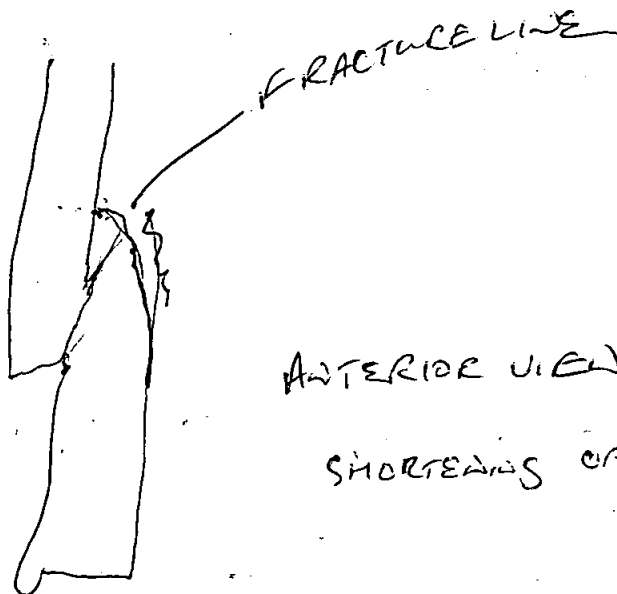 FRACTURE LINE
ANTERIOR VIEW
SHORTENING OF